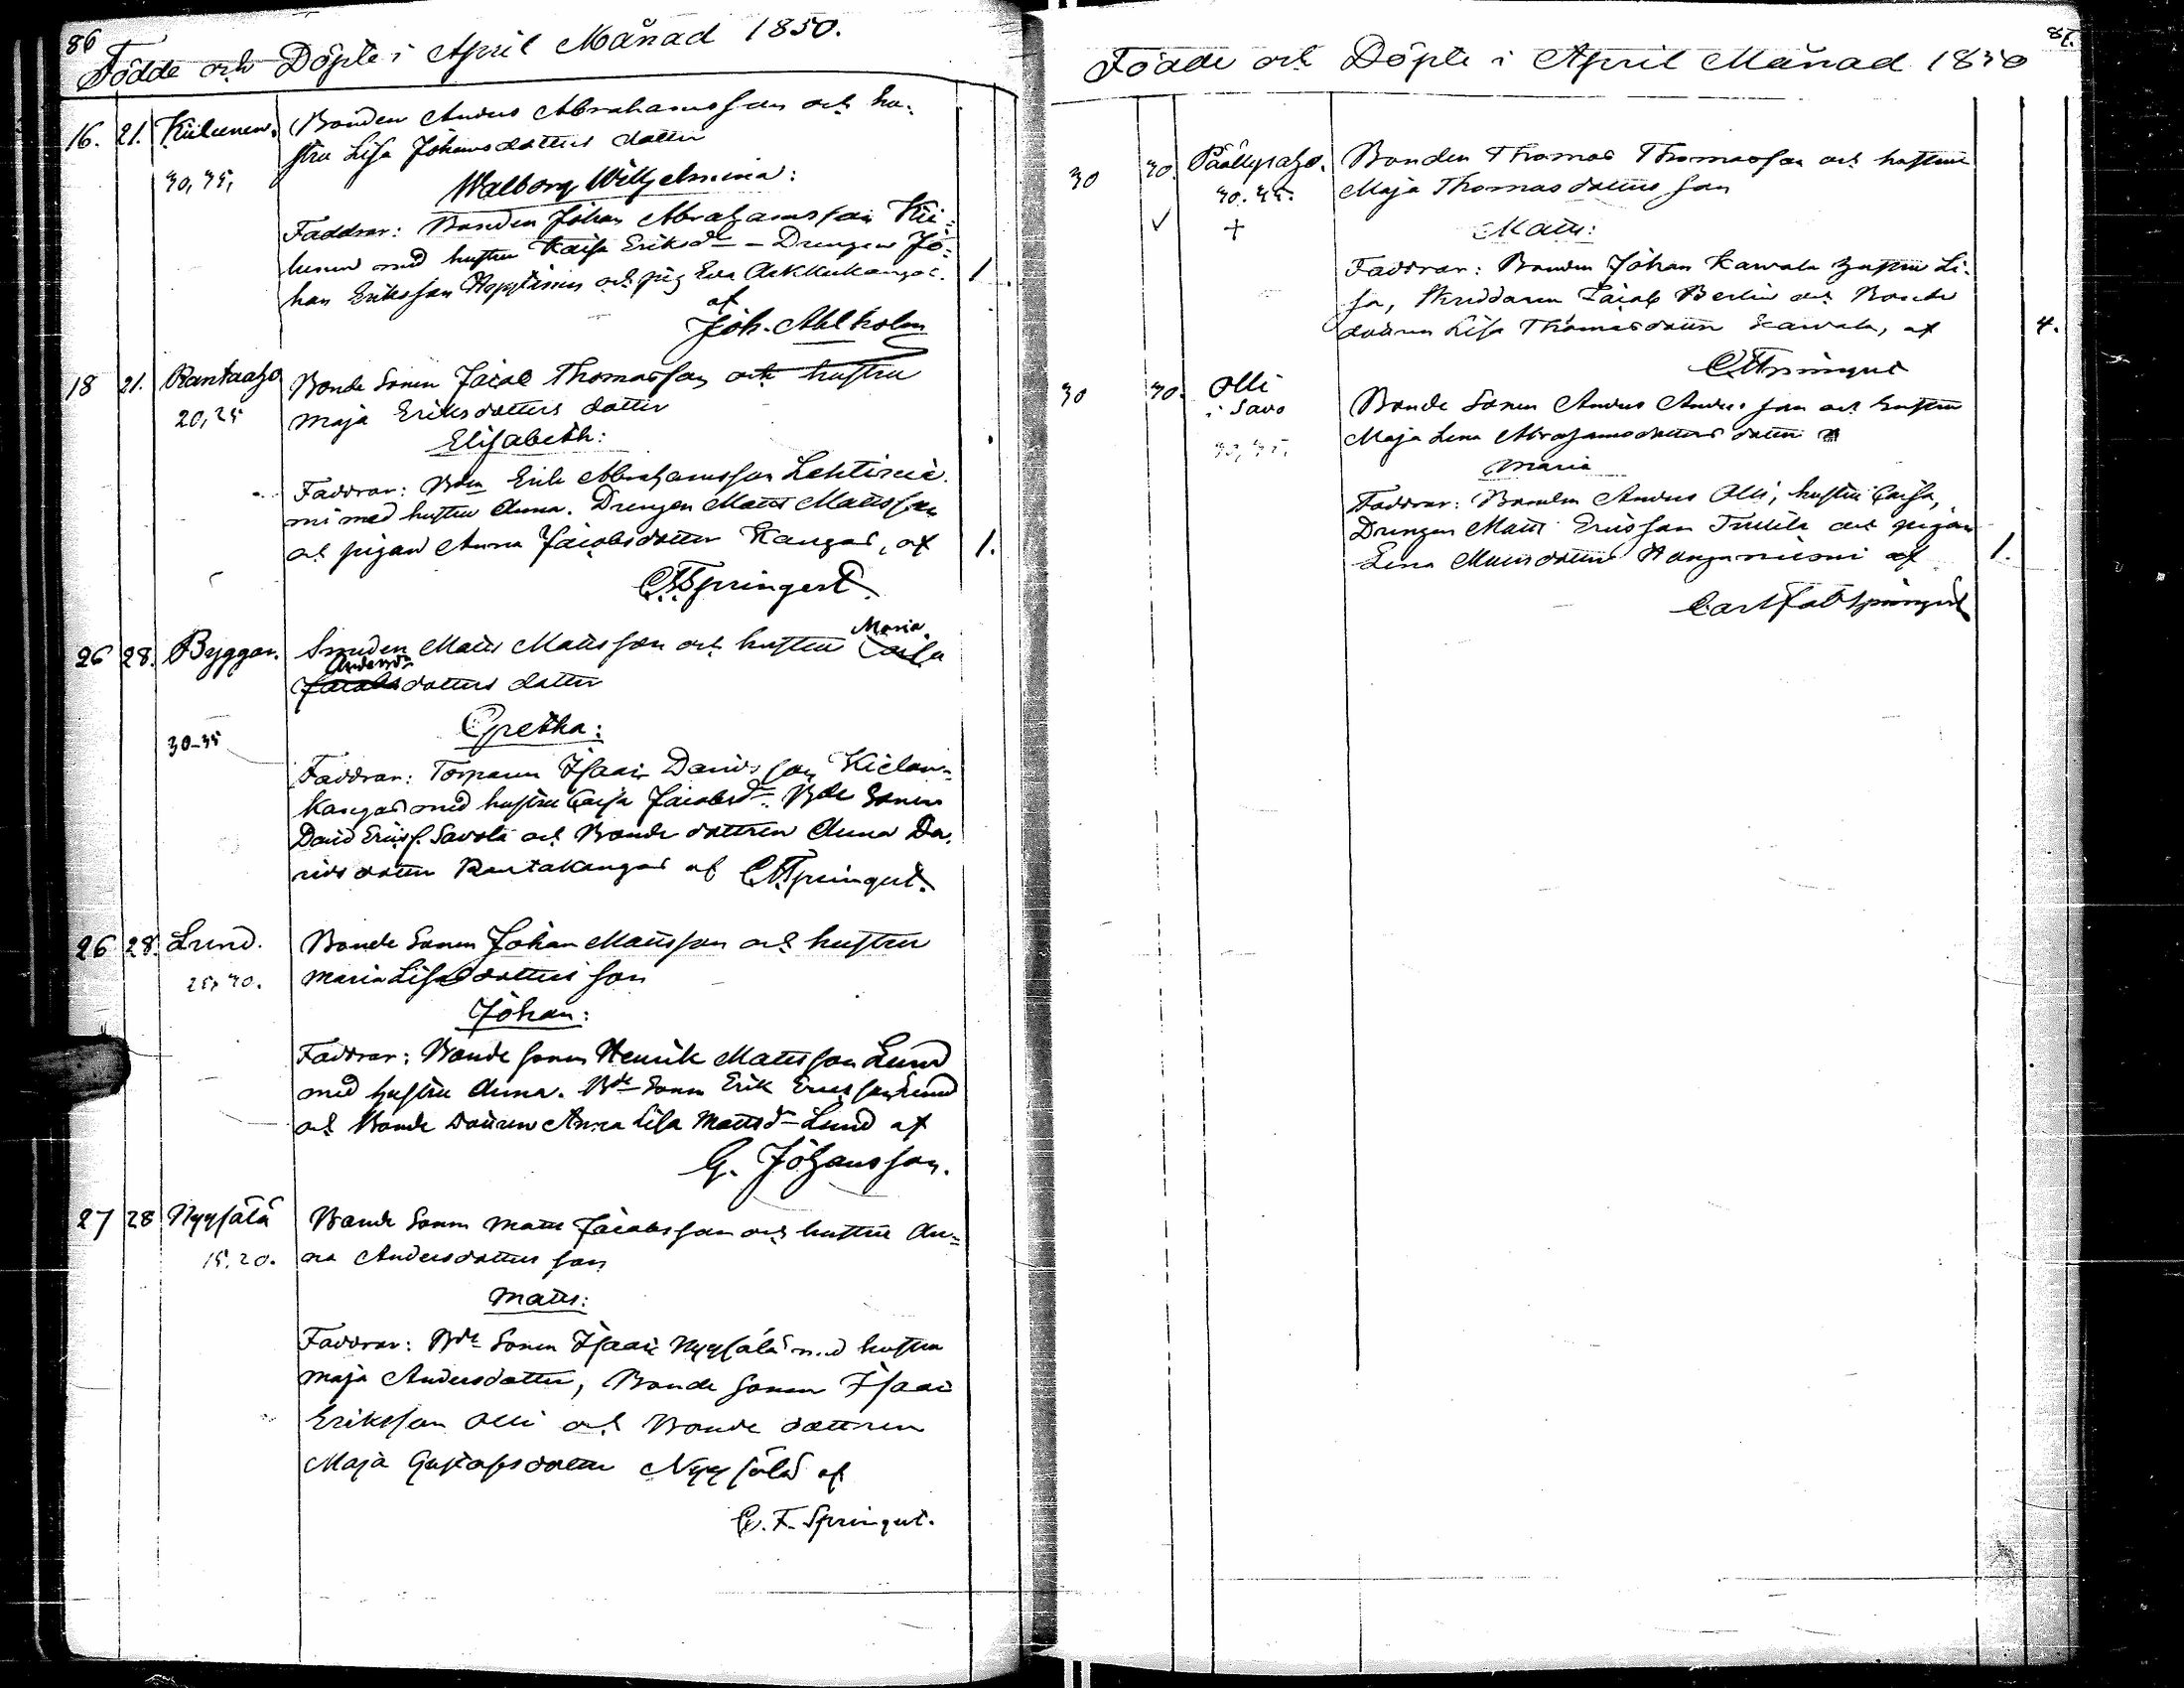 86
Födde och Döpte i April Månad 1850.
16. 21. Kiilunen. Bonden Anders Abrahamsson och hu-
stru Lisa Johansdotters dotter
30, 35,
Walborg Wilhelmina:
Faddrar: Bonden Johan Abrahamsson Kii-
lunen med hustru Kaisa Eriksdr – Drengen Jo-
han Eriksson och pig Eva 1
af
Joh. Ahlholm
18 21. Rantaaho Bonde Sonen Jacob Thomasson och hustru
20, 25 Maja Eriksdotters dotter
Elisabeth:
Faddrar: Bdn Erik Abrahamsson Lehtinie-
mi med hustru Anna. Drengen Matts Mattsson
och pigan Anna Jacobsdotter Kangas, af 1.
CFSpringert.
26 28. Byggar. Smeden Matts Mattsson och hustru Maria Caisa
Andersdr
Jacobsdotters dotter
Gretha:
30-35
Faddrar: Torparen Isaac Davidsson Kielon-
kangas med hustru Caisa Jacobsdr. Bde Sonen
David Erics. Savola och Bonde dottren Anna Da-
vidsdotter Rautakangas af CFSpringert.
26 28. Lund. Bonde Sonen Johan Mattsson och hustru
25, 30. Maria Lisa dotters son
Johan:
Faddrar: Bonde sonen Henrik Mattsson Lund
med hustru Anna. Bde Sonen Erik Ericsson Lund
och Bonde Dottren Anna Lisa Mattsdr Lund af
G. Johansson.
27 28 Nyysälä Bonde Sonen Matts Jacobsson och hustru An-
15, 20. na Andersdotters son
Matts:
Faddrar: Bde Sonen Isaac Nyysälä med hustru
Maja Andersdotter, Bonde sonen Isaac
Eriksson Olli och Bonde dottren
Maja Gustafsdotter Nyysälä af
C. F. Springert.
87.
Födde och Döpte i April Månad 1850
30 30. Päällysaho. Bonden Thomas Thomasson och hustru
30. 35. Maja Thomasdotters son
✓ + Matts:
Faddrar: Bonden Johan Kawala hustru Li-
sa, Skreddaren Jacob Berlin och Bonde
dottren Lisa Thomasdotter Kawala, af 4.
CFSpringert
30 30. Olli Bonde Sonen Anders Andersson och hustru
i Savo
30, 35. Maja Lena Abrahamsdotters dotter
Maria
Faddrar: Bonden Anders Olli, hustru Caisa,
Drengen Matts Ericsson och pigan
Lena Mattsdotter Kangasniemi af 1.
Carl Fab Springert